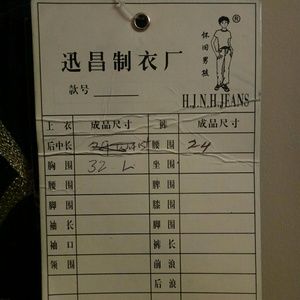 迅昌制衣厂
款号
®
怀旧男孩
H.J.N.H.JEANS
上衣 成品尺寸 裤 成品尺寸
后中长 腰围 24
胸围 32 L 坐围
腰围 脾围
脚围 膝围
袖长 脚围
袖口 裤长
领围 前浪
后浪